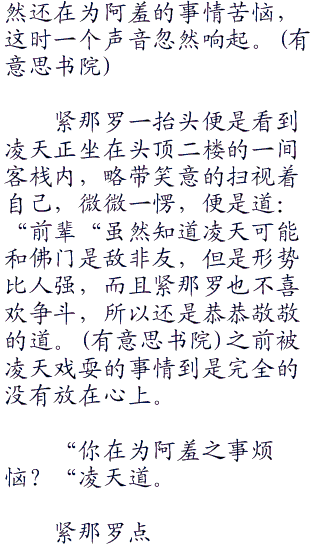 然还在为阿羞的事情苦恼，
这时一个声音忽然响起。(有
意思书院)
紧那罗一抬头便是看到
凌天正坐在头顶二楼的一间
客栈内，略带笑意的扫视着
自己，微微一愣，便是道：
“前辈“虽然知道凌天可能
和佛门是敌非友，但是形势
比人强，而且紧那罗也不喜
欢争斗，所以还是恭恭敬敬
的道。(有意思书院)之前被
凌天戏耍的事情到是完全的
没有放在心上。
“你在为阿羞之事烦
恼？“凌天道。
紧那罗点